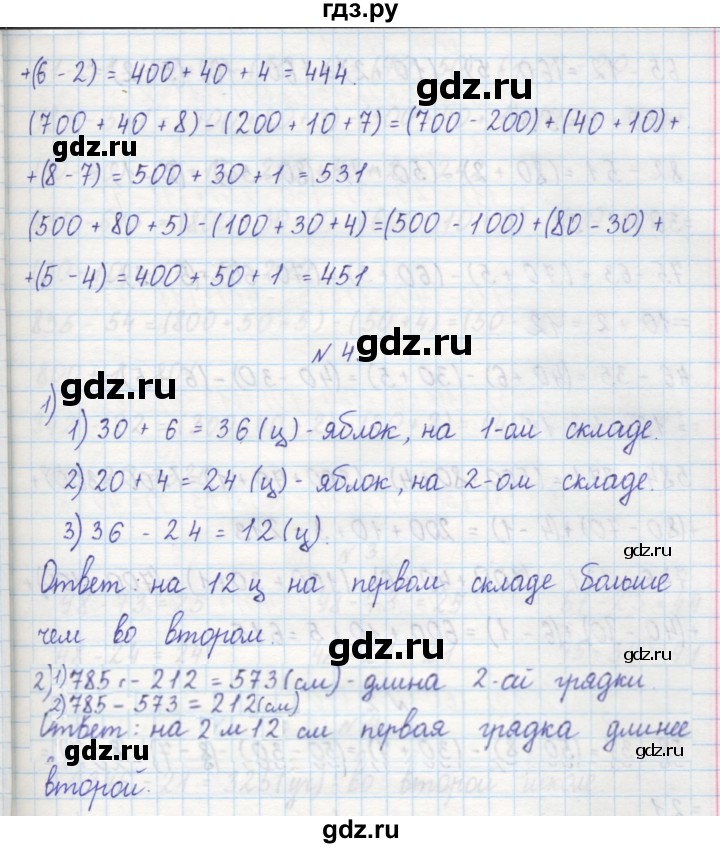 гдз.ру
+(6 - 2) = 400 + 40 + 4 = 444.
(700 + 40 + 8) - (200 + 10 + 7) = (700 - 200) + (40 + 10) +
gdz.ru
+(8 - 7) = 500 + 30 + 1 = 531
(500 + 80 + 5) - (100 + 30 + 4) = (500 - 100) + (80 - 30) +
gdz.ru
+(5 - 4) = 400 + 50 + 1 = 451
№ 4
gdz.ru
1)
1) 30 + 6 = 36 (ц) - яблок, на 1-ом складе.
2) 20 + 4 = 24 (ц) - яблок, на 2-ом складе.
gdz.ru
3) 36 - 24 = 12 (ц).
gdz.ru
Ответ: на 12 ц на первом складе больше
чем во втором.
gdz.ru
2) 1) 785 - 212 = 573 (см) - длина 2-ой грядки.
2) 785 - 573 = 212 (см)
gdz.ru
Ответ: на 2 м 12 см первая грядка длинее
gdz.ru
второй.
gdz.ru